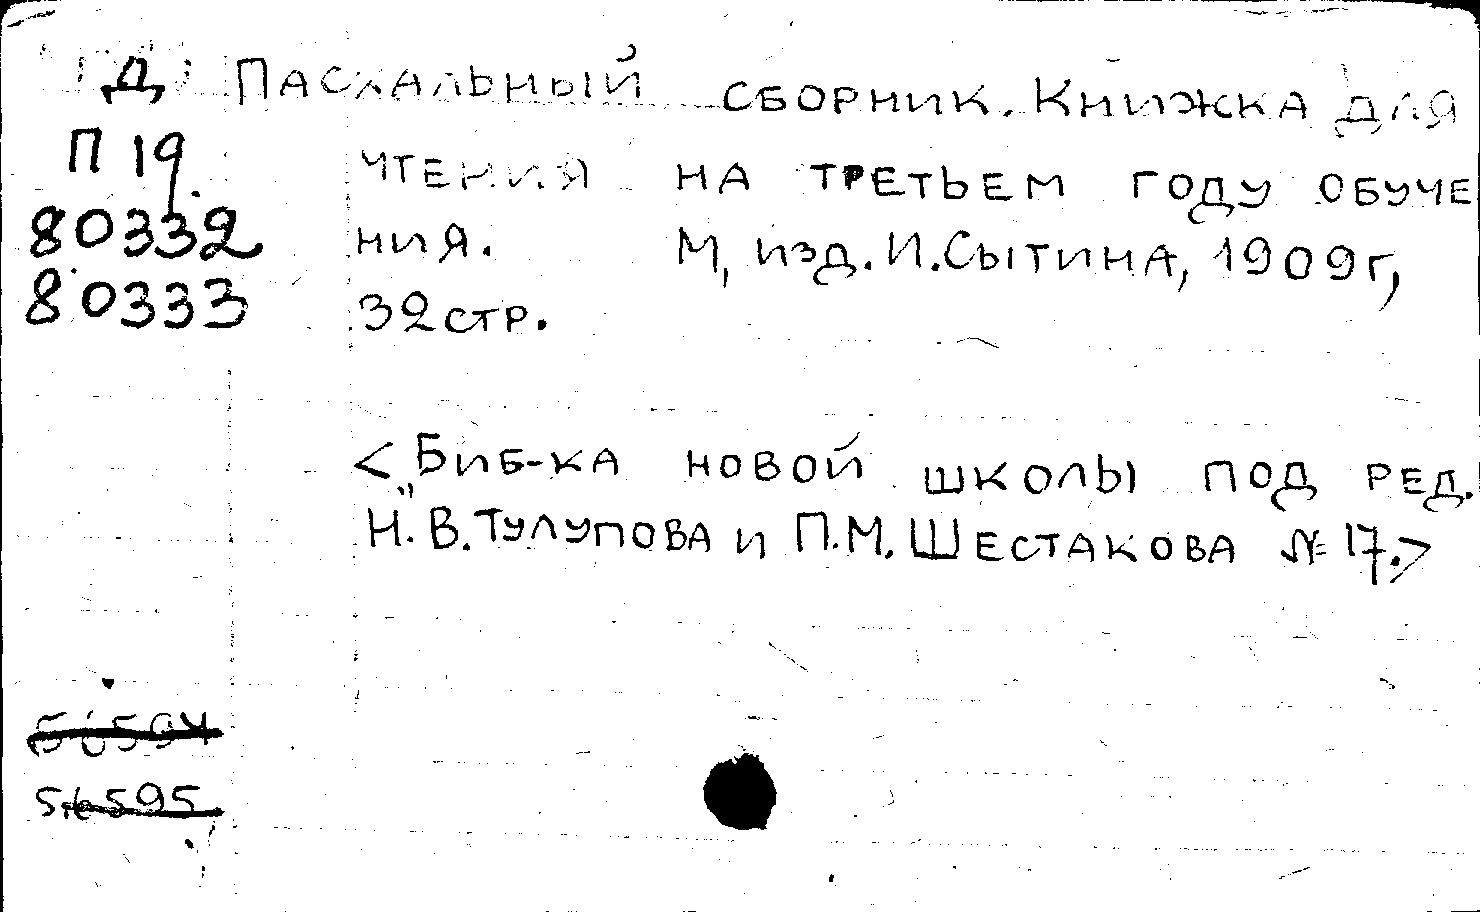 Д Пасхальный сборник. Книжка для
П 19. чтения на третьем году обуче
80332 ния. М, изд. И. Сытина, 1909 г,
80333 32 стр.
<„Биб-ка новой школы под ред.
Н. В. Тулупова и П. М. Шестакова № 17.>
56594
56595